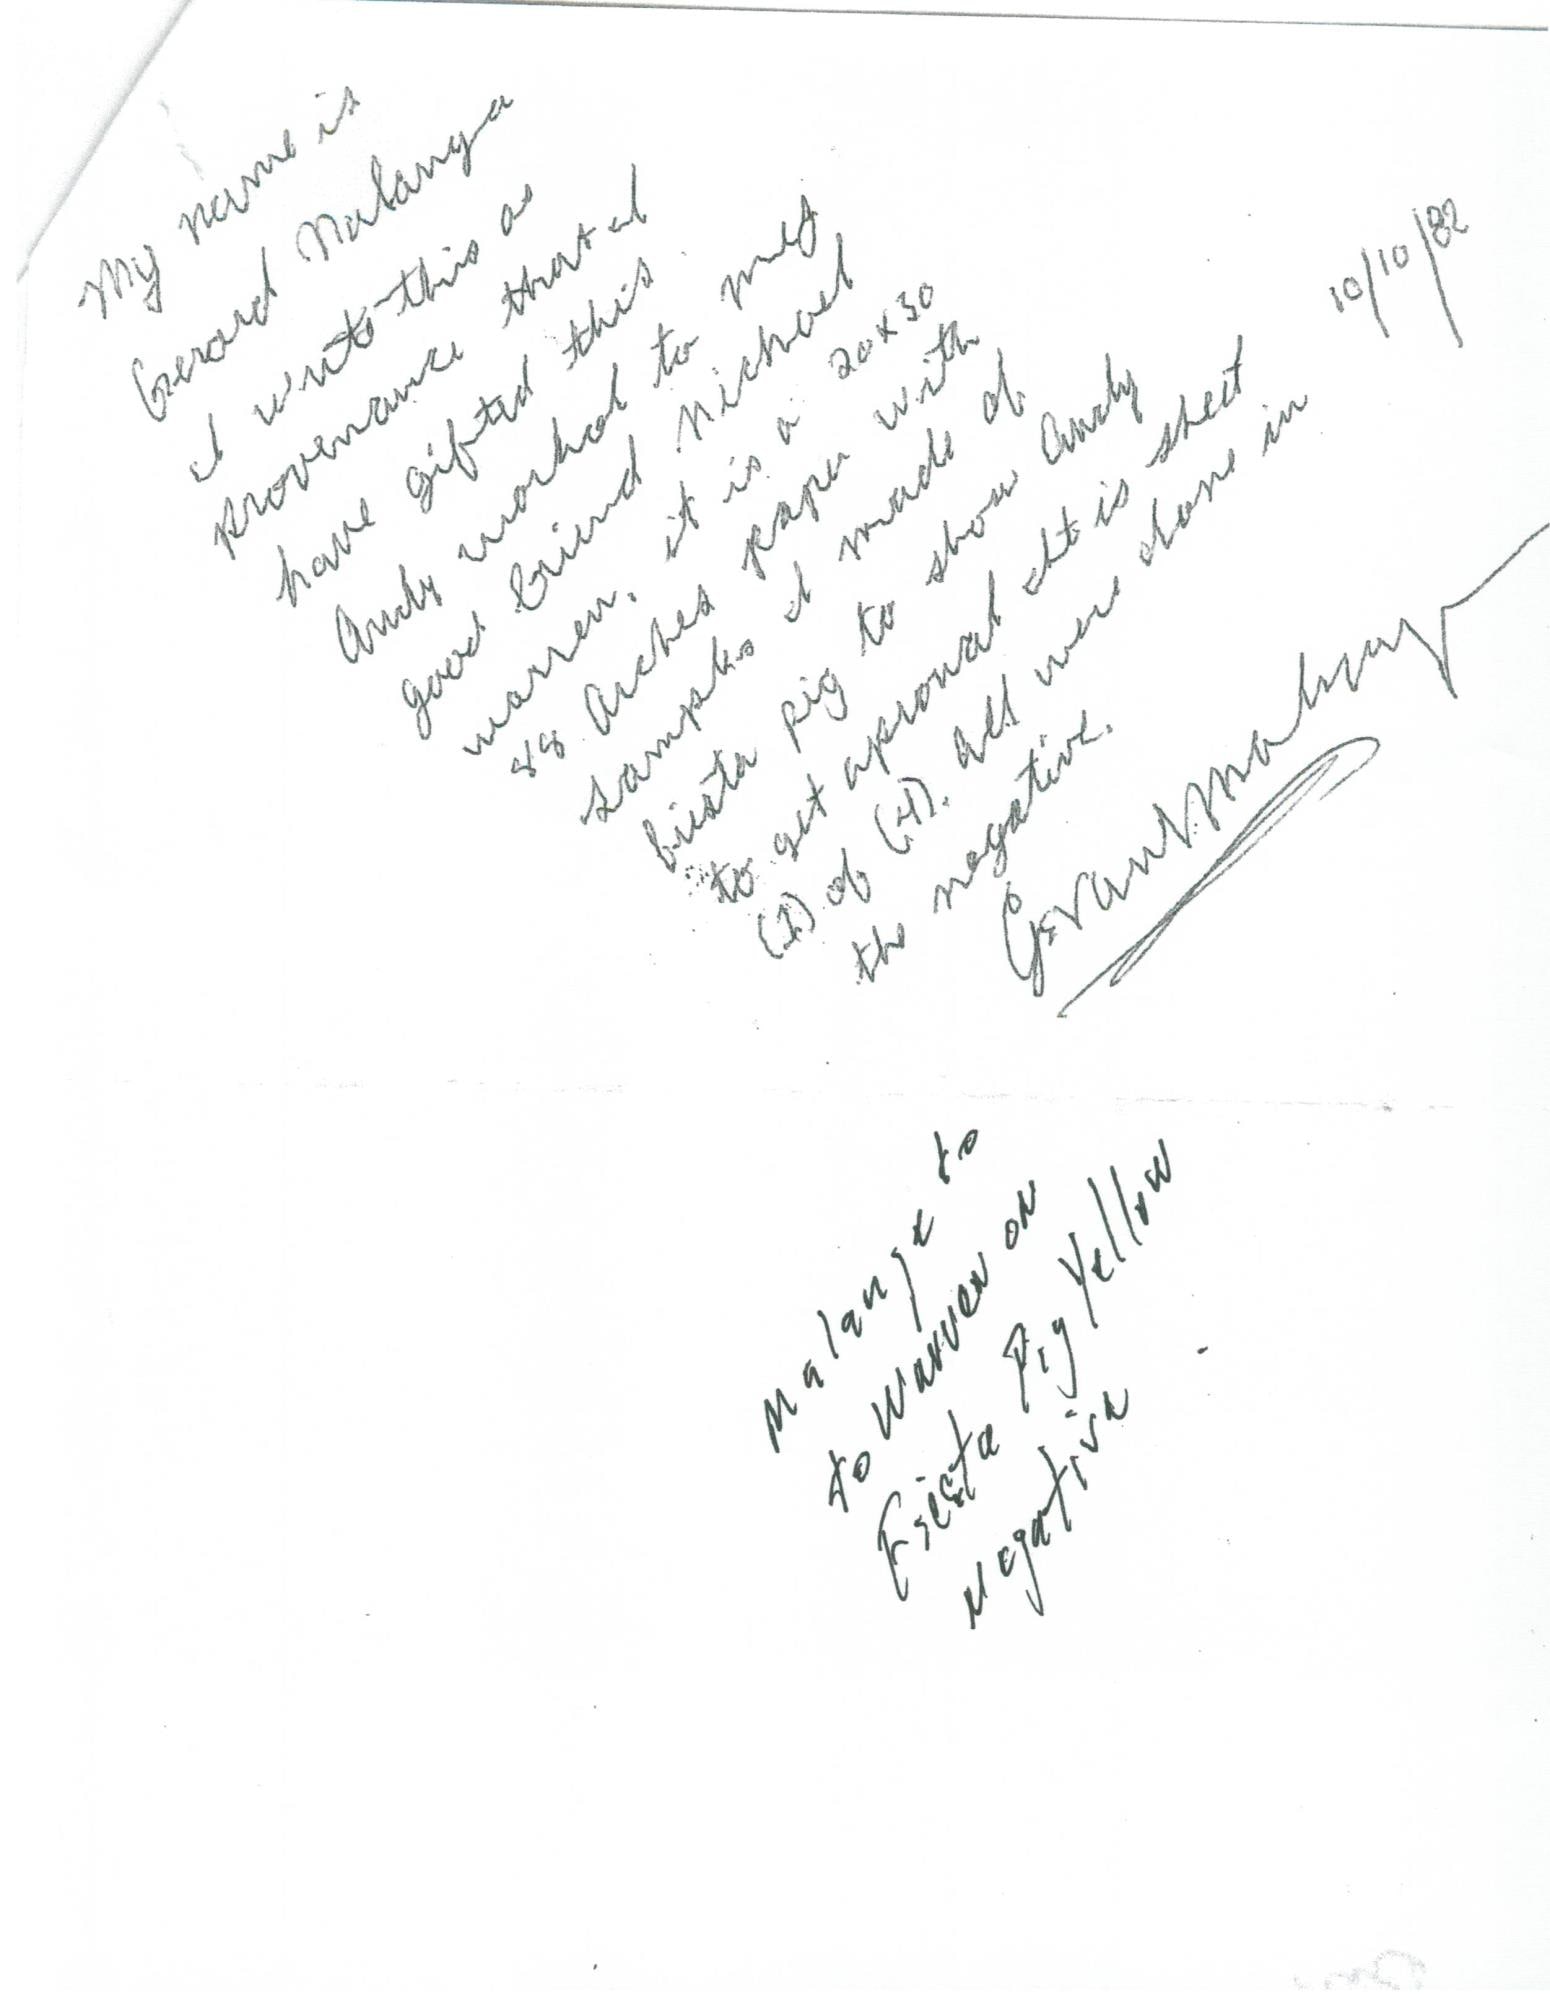 My name is
Gerard Malanga
I write this as
provenance that I
have gifted this
Andy Warhol to my
good friend Michael
Warren. it is a 20x30
88 Arches paper with
samples I made of
fiesta pig to show Andy
to get aproval it is sheet
(1) of (4). all were done in
the negative.
10/10/82
Gerard Malanga
Malanga to
to Warren on
Fiesta Pig Yellow
Negative